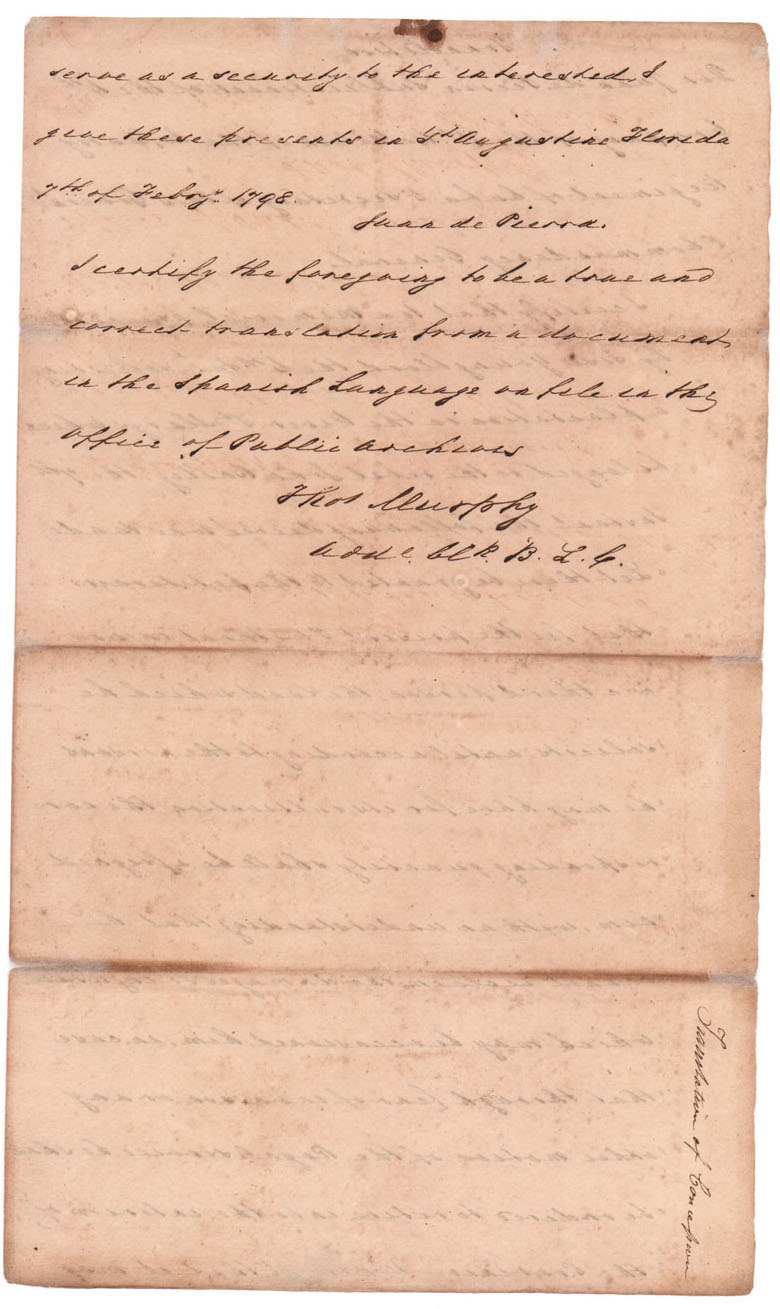 serve as a security to the interested, I
give these presents in St. Augustine Florida
7th of Feby. 1798.
Juan de Pierra.
I certify the foregoing to be a true and
correct translation from a document
in the Spanish Language on file in the
office of Public Archives
Thos Murphy
Clk. B. L. C.
Translation of